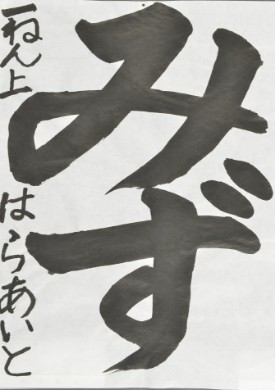 みず
一ねん上 はらあいと